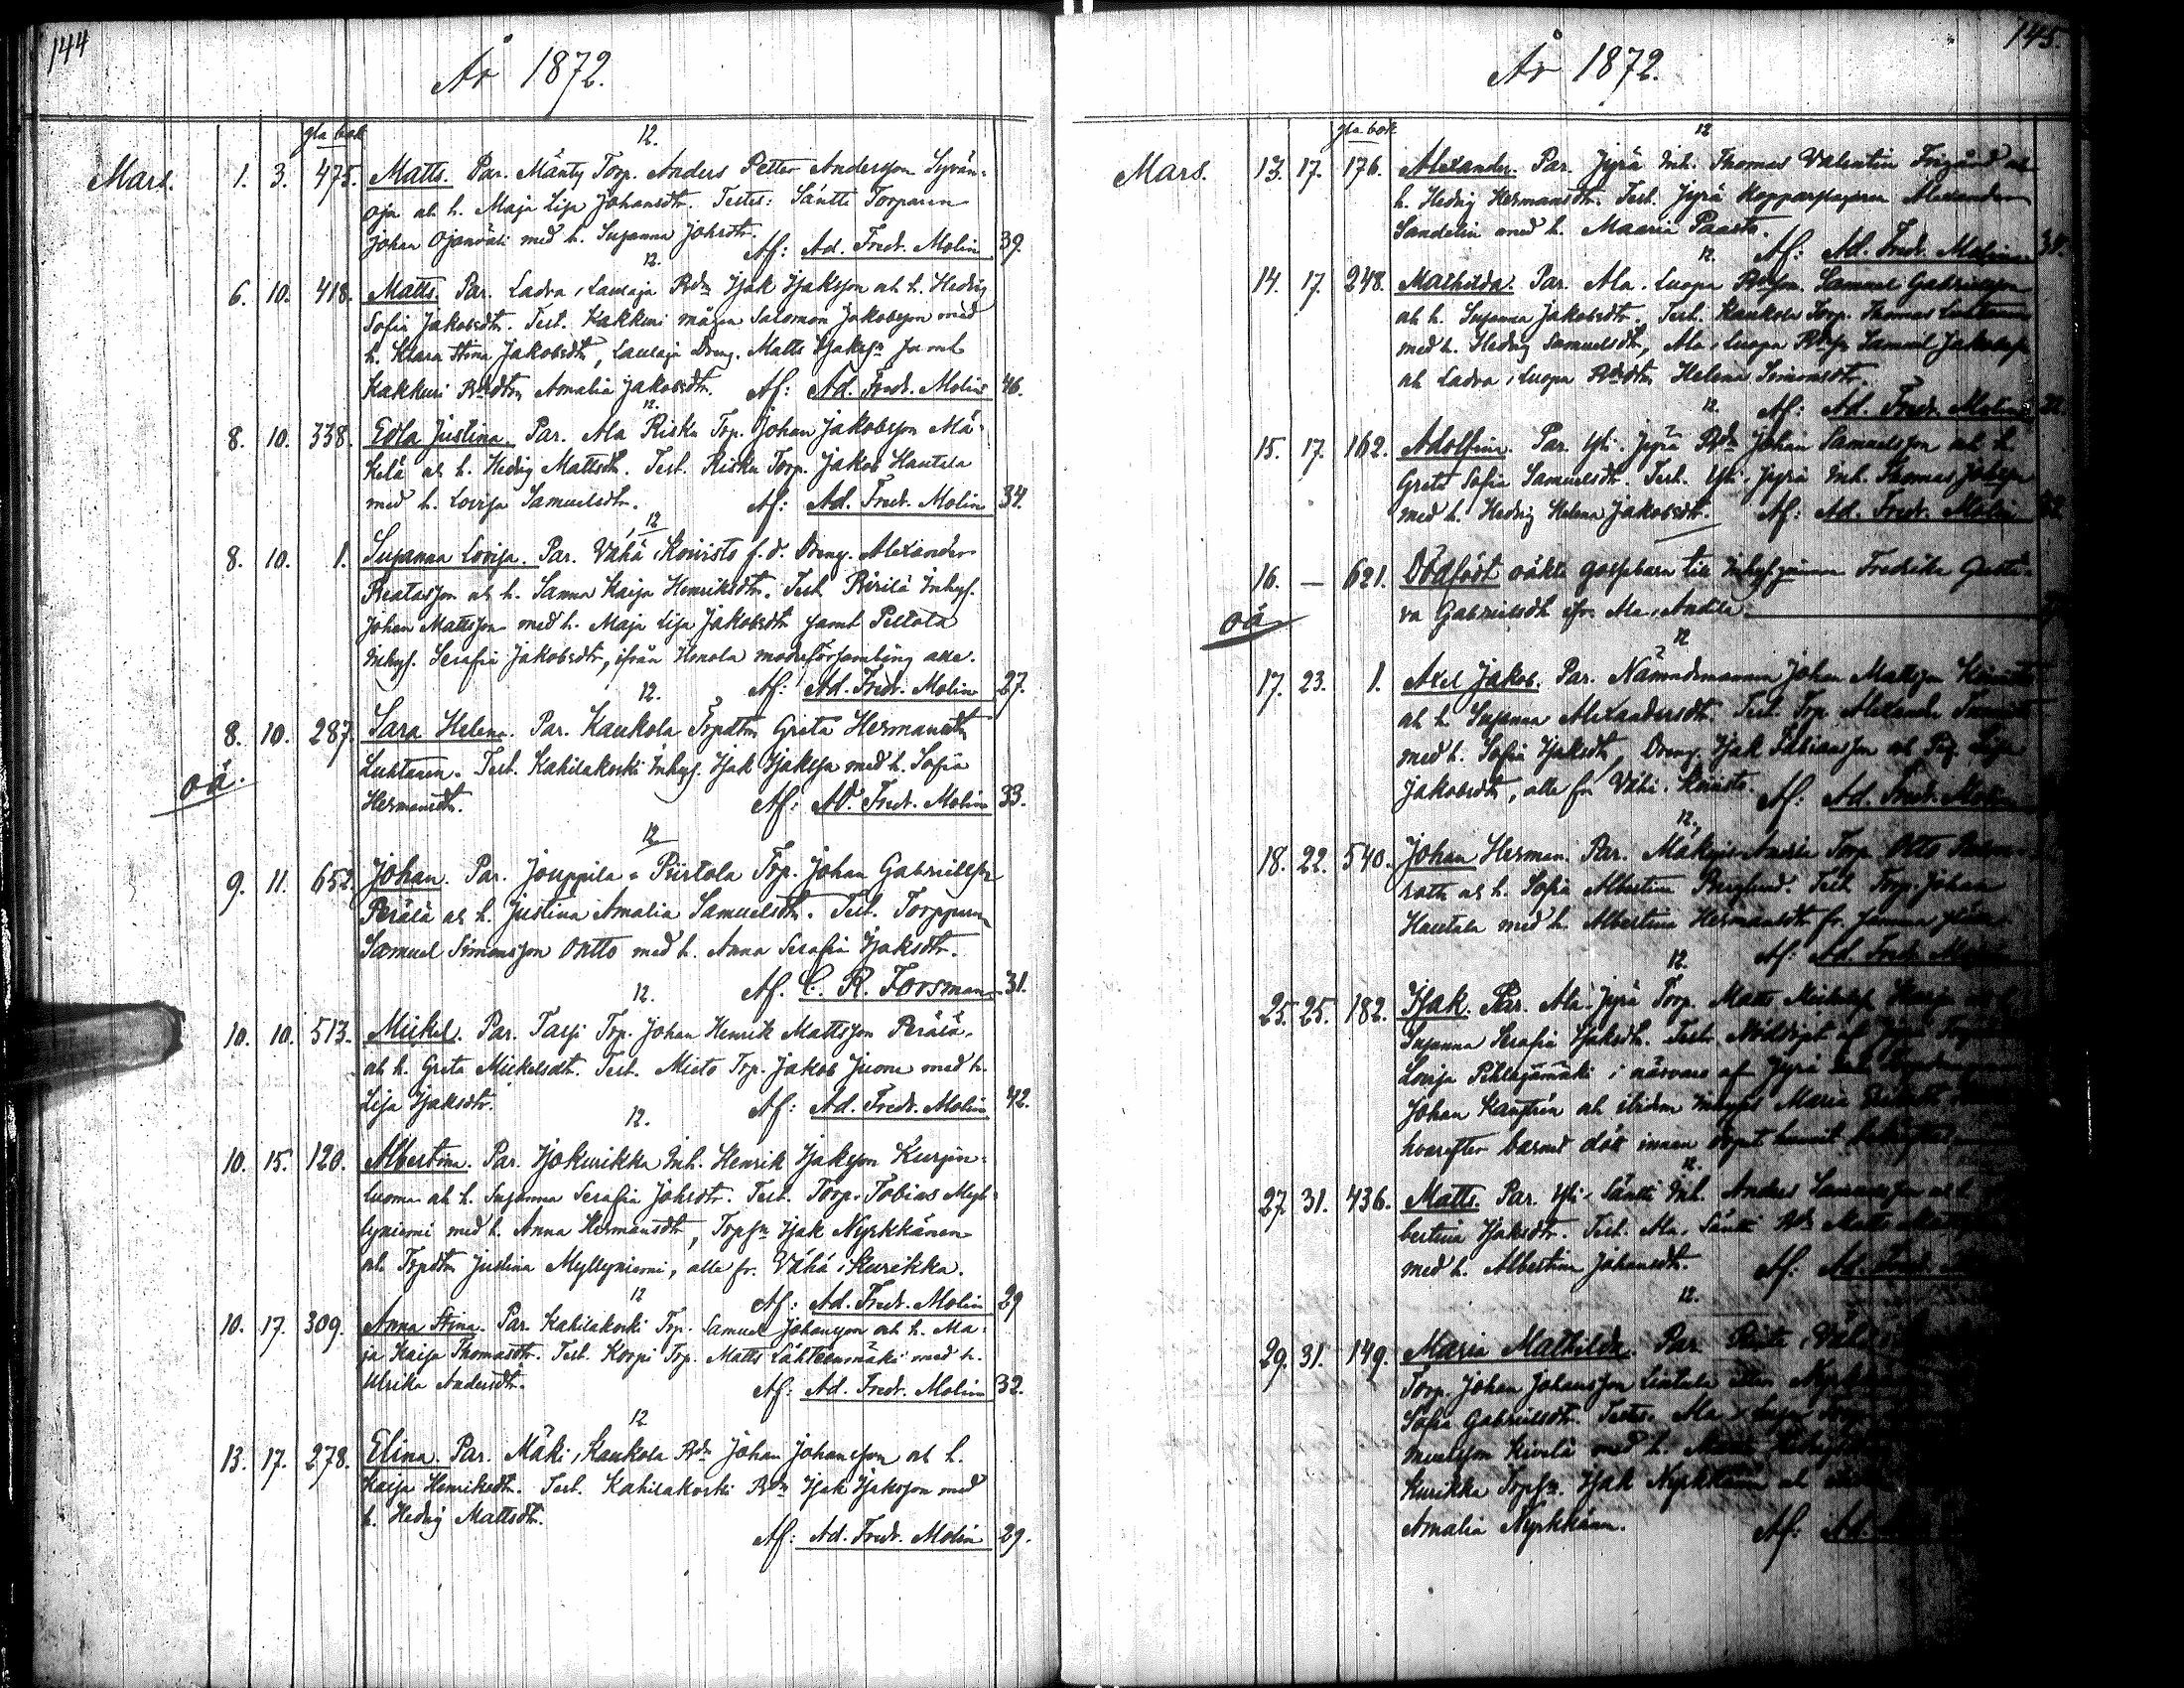 144
År 1872.
gla bok
12.
Mars. 1. 3. 475. Matts. Par. Mänty Torp. Anders Petter Andersson Syvän-
oja och h. Maja Lisa Johansdtr. Testes: Säntti Torparen
Johan Ojanväli med h. Susanna Johsdtr. Af: Ad. Fredr. Molin 39.
12.
6. 10. 418. Matts. Par. Ladva, Lauraja Bdn Isak Isaksson och h. Hedvig
Sofia Jakobsdtr. Test. Kakkuri mågen Salomon Jakobsson med
h. Klara Stina Jakobsdtr, Lauraja Dreng. Matts Isaksn samt
Kakkuri Bdtr Amalia Jakobsdtr. Af: Ad. Fredr. Molin 46.
12.
8. 10. 338. Edla Justina. Par. Ala Risku Trp. Johan Jakobsson Mä-
kelä och h. Hedvig Mattsdtr. Test. Risku Torp. Jakob Hautala
med h. Lovisa Samuelsdtr. Af: Ad. Fredr. Molin 34.
12
8. 10. 1. Susanna Lovisa. Par. Vähä Koivisto f.d. Dreng. Alexander
Beatasson och h. Sanna Kaisa Henriksdtr. Test. Pirilä Inhys.
Johan Mattsson med h. Maja Lisa Jakobsdtr samt Peltola
Inhys. Serafia Jakobsdtr, ifrån Ilmola moderförsamling alla.
12. Af: Ad. Fredr. Molin 27.
8. 10. 287. Sara Helena. Par. Kaukola Trpdtr Greta Hermansdtr
oä.
Luhtanen. Test. Kahilakoski Inhys. Isak Isaksn med h. Sofia
Hermansdtr. Af: Ad. Fredr. Molin 33.
12
9. 11. 652. Johan. Par. Jouppila-Piirtola Trp. Johan Gabrielsn
Perälä och h. Justina Amalia Samuelsdtr. Test. Torpparen
Samuel Simonsson Ontto med h. Anna Serafia Isaksdtr.
12. Af. C. R. Forsman 31.
10. 10. 513. Mickel. Par. Tarsi Trp. Johan Henrik Mattsson Perälä
och h. Greta Mickelsdtr. Test. Mieto Trp. Jakob Juome med h.
Lisa Isaksdtr. Af: Ad. Fredr. Molin 42.
12.
10. 15. 120. Albertina. Par. Isokurikka Inh. Henrik Isaksson Kurjen-
luoma och h. Susanna Serafia Johsdtr. Test. Torp. Tobias Myl-
lyniemi med h. Anna Hermansdtr, Trpsn Isak Nyrkkänen
och Trpdtr Justina Myllyniemi, alla fr. Vähä Kurikka.
12 Af: Ad. Fredr. Molin 29
10. 17. 309. Anna Stina. Par. Kahilakoski Trp. Samuel Johansson och h. Ma-
ja Kaisa Thomasdtr. Test. Korpi Trp. Matts Lähteenmäki med h.
Ulrika Andersdtr. Af: Ad. Fredr. Molin 32.
12
13. 17. 278. Elina. Par. Mäki, Kaukola Bdn Johan Johansson och h.
Kaisa Henriksdtr. Test. Kahilakoski Bdn Isak Isaksson med
h. Hedvig Mattsdtr.
Af: Ad. Fredr. Molin 29.
145.
År 1872.
gla bok
12
Mars. 13. 17. 176. Alexander. Par. Jyrä Inh. Thomas Valentin Frigård och
h. Hedvig Hermansdtr. Test. Jyrä Kopparslagaren Alexander
Sandelin med h. Maaria Paasto.
12. Af: Ad. Fredr. Molin
14. 17. 248. Mathilda. Par. Ala-Luopa Bdson. Samuel Gabrielsson
och h. Susanna Jakobsdtr. Test. Kaukola Torp. Thomas Luhtanen
med h. Hedvig Samuelsdtr, Ala-Luopa Bdsn Samuel Jakobsn
och Ladva, Luopa Bdtr Helena Simonsdtr.
12. Af: Ad. Fredr. Molin
15. 17. 162. Adolfina. Par. Yli-Jyrä Bdn Johan Samuelsson och h.
Greta Sofia Samuelsdtr. Test. Yli-Jyrä Inh. Thomas Johsn
med h. Hedvig Helena Jakobsdtr. Af: Ad. Fredr. Molin
16. — 621. Dödfödt oäkta gossebarn till Fredrika Gusta-
oä
va Gabrielsdtr ifr. Ala-Anttila.
12
17. 23. 1. Axel Jakob. Par. Nämndemannen Johan Mattsson
och h. Susanna Alexandersdtr. Test. Trp Alexander
med h. Sofia Isaksdtr, Dreng. Isak Fabiansson och Pig. Lisa
Jakobsdtr, alla fr. Vähä-Koivisto. Af: Ad. Fredr. Molin
12.
18. 22. 540. Johan Herman. Par. Torp. Otto
och h. Sofia Albertina Berglund. Test. Torp. Johan
Hautala med h. Albertina Hermansdtr fr. samma
12. Af: Ad. Fredr.
25. 25. 182. Isak. Par. Ala-Jyrä Torp. Matts
Susanna Serafia Isaksdtr. Test. Nöddöpt af Jyrä
Lovisa Pihlajamäki i närvaro af Jyrä
Johan och Maria
hvarefter barnet dött innan dopet hunnit
12.
27. 31. 436. Matts. Par. Yli-Säntti Inh. Anders
bertina Isaksdtr. Test. Ala-Säntti Bdn Matts
med h. Albertina Johansdtr. Af: Ad.
12.
29. 31. 149. Maria Mathilda. Par.
Torp. Johan Johansson Lintala
Sofia Gabrielsdtr. Testes. Ala
Kivelä med h.
Kurikka Trpsn. Isak Nyrkkänen
Amalia Nyrkkänen. Af: Ad.